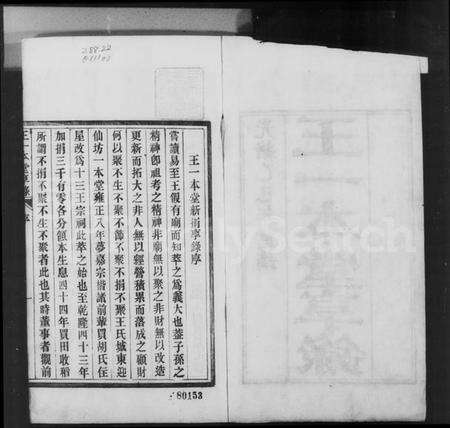 288.22
王一本堂新捐事錄序
嘗讀易至王假有廟而知萃之爲義大也葢子孫之
精神卽祖考之精神非廟無以聚之非財無以改造
更新而拓大之非人無以經營積累而落成之顧財
何以聚不生不聚不節不聚不捐不聚王氏城東迎
仙坊一本堂雍正八年夢嘉宗偕諸前輩買胡氏住
屋改爲十三王宗祠此萃之始也至乾隆四十三年
加捐三千有零各分領本生息四十四年買田收稻
所謂不捐不聚不生不聚者此也其時董事者觀前
王一本堂
序
80153